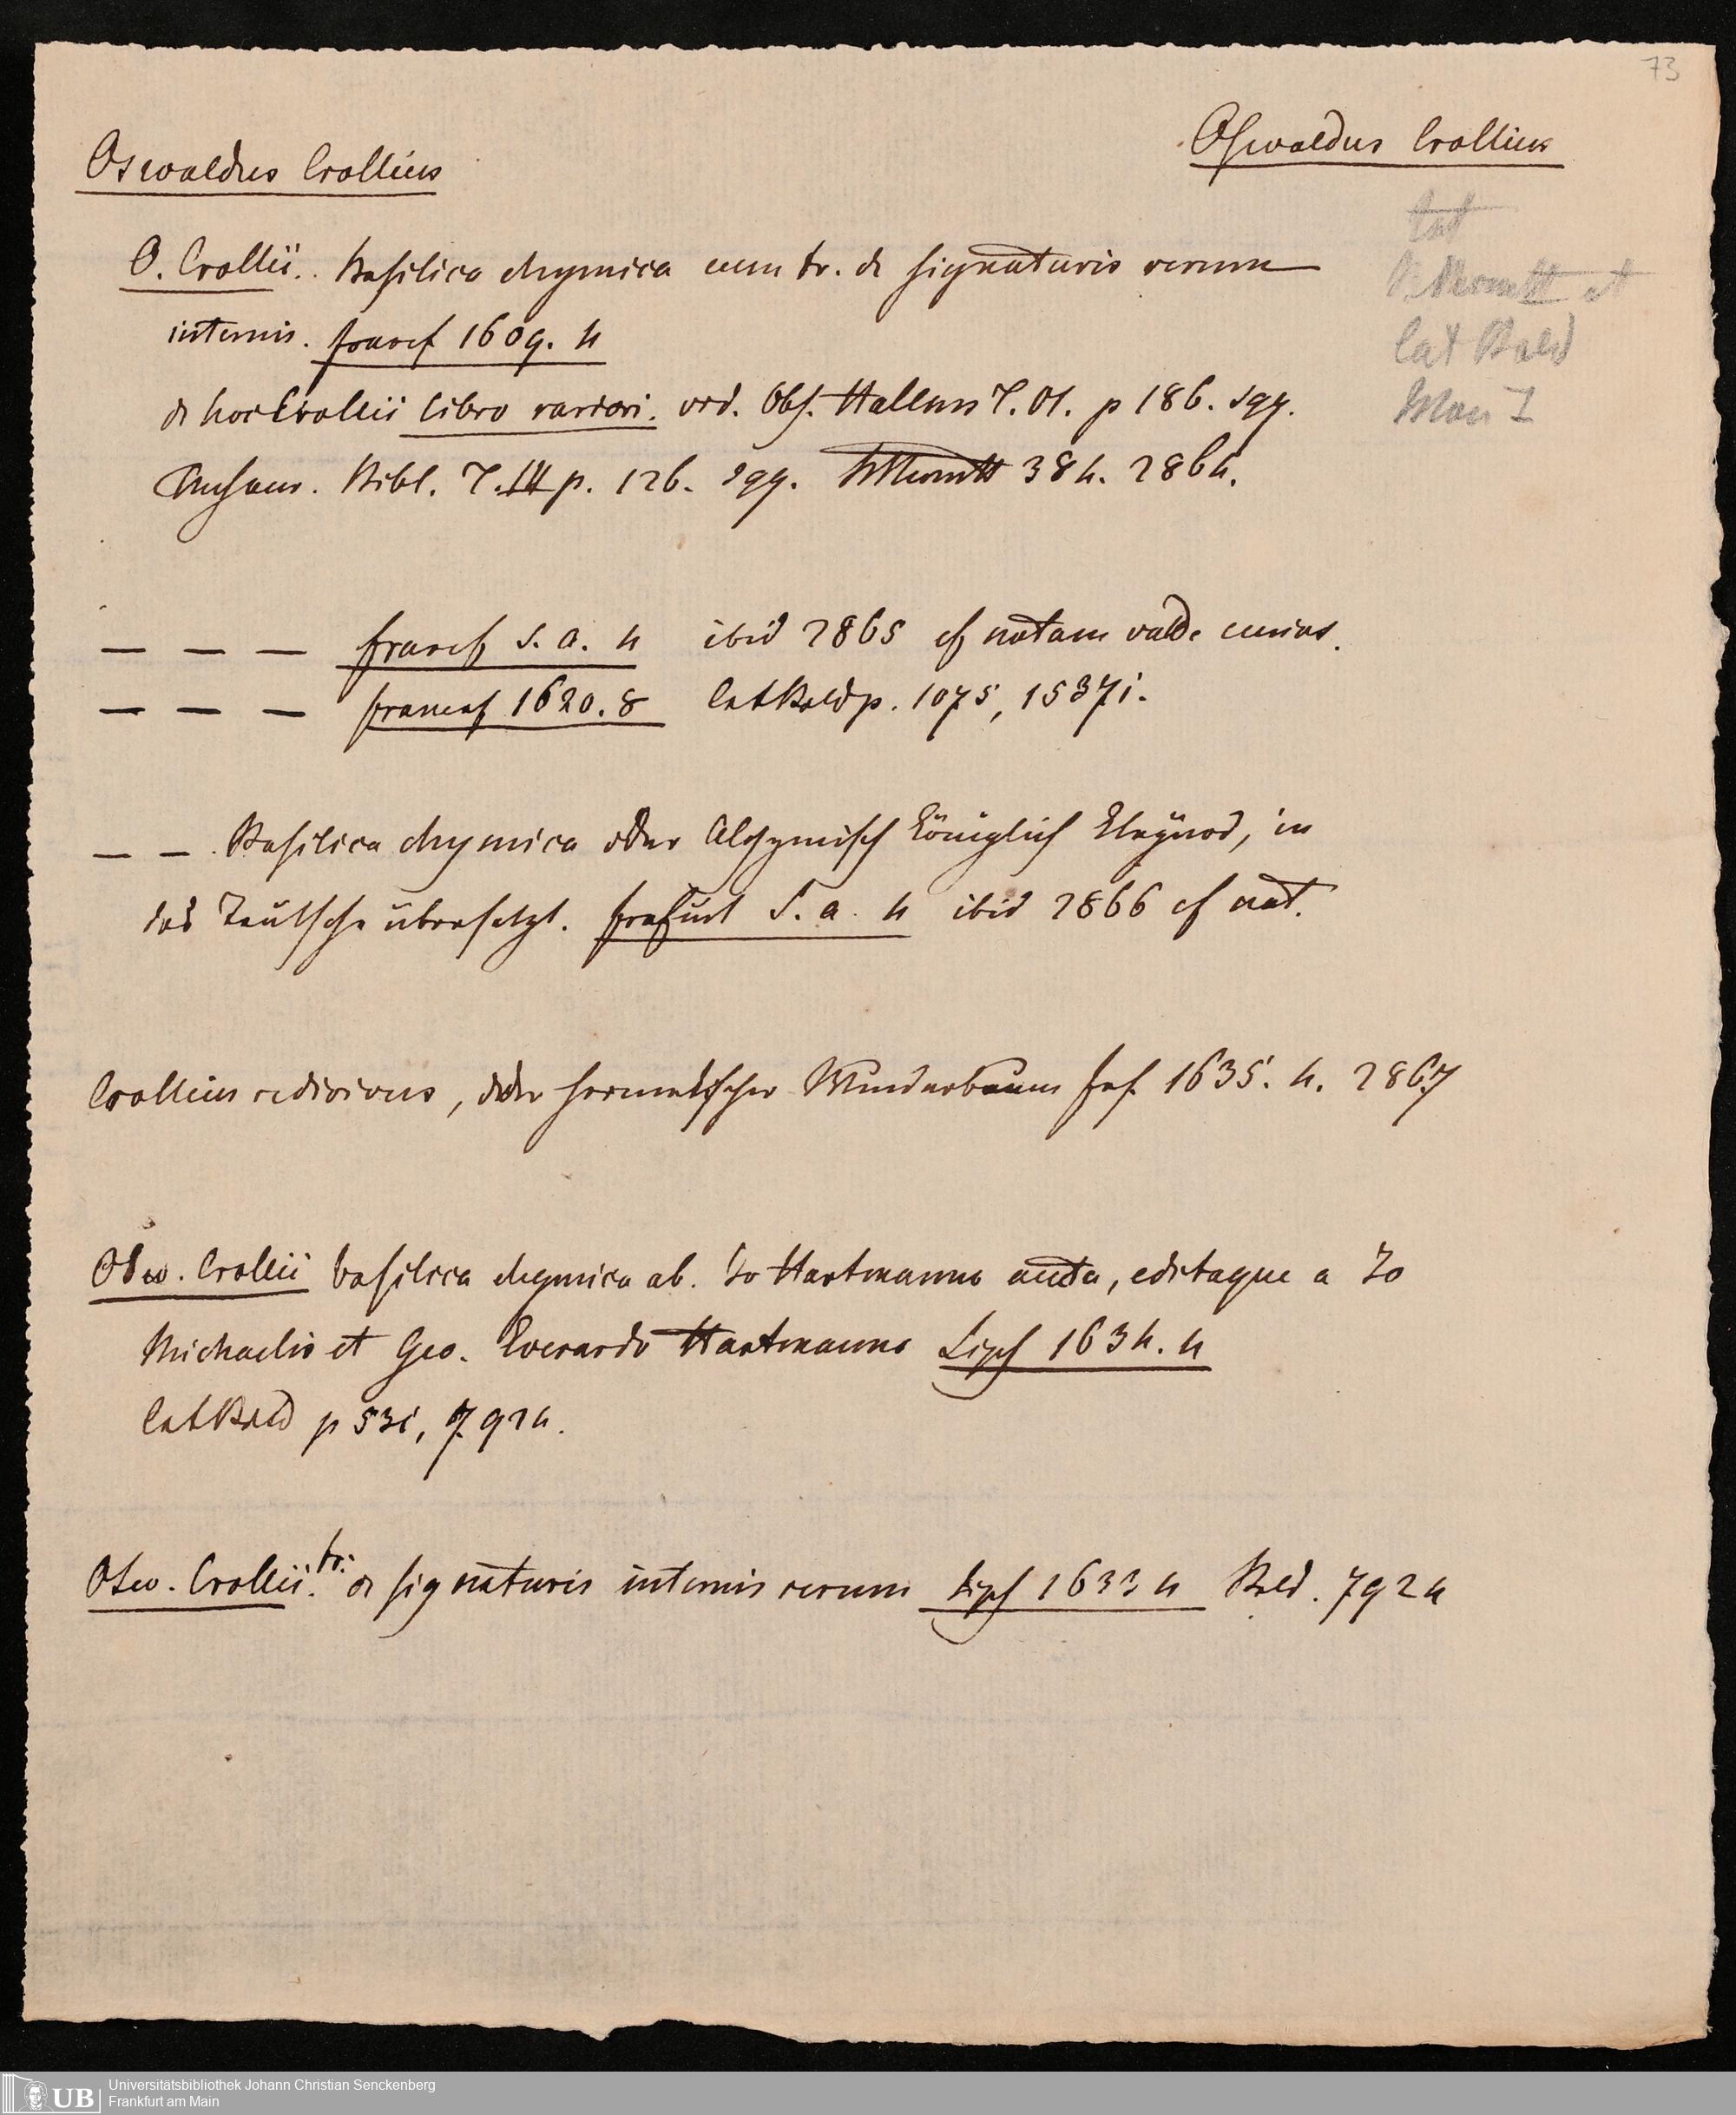 73
Oswaldus Crollius
Oswaldus Crollius
Cat
et
Cat Bald
Man I
O. Crollii. Basilica chymica cum tr. de signaturis rerum
internis. francf 1609. 4
de hoc Crollii libro rariori. vid. Obs. Hallens T. 01. p 186. sqq.
Bibl. T. III p. 126. sqq. 384. 2864.
— — — francf s. a. 4 ibid 2865 cf notam valde curios.
— — — francof 1620. 8 CatBald p. 1075, 15371.
— — Basilica chymica oder Alchymisch Königlich Kleynod, in
das Teutsche übersetzt. frankfurt S. a. 4 ibid 2866 cf not.
Crollius redivivus, oder hermetischer Wunderbaum frf. 1635. 4. 2867
Osw. Crollii basilica chymica ab. Io Hartmanno aucta, editaque a Io
Michaelis et Geo. Everardo Hartmanno Lips 1634. 4
CatBald p 531, 7924.
Osw. Crollii tr. de signaturis internis rerum Lips 1633 4 Bald. 7924
Universitätsbibliothek Johann Christian Senckenberg
Frankfurt am Main
UB